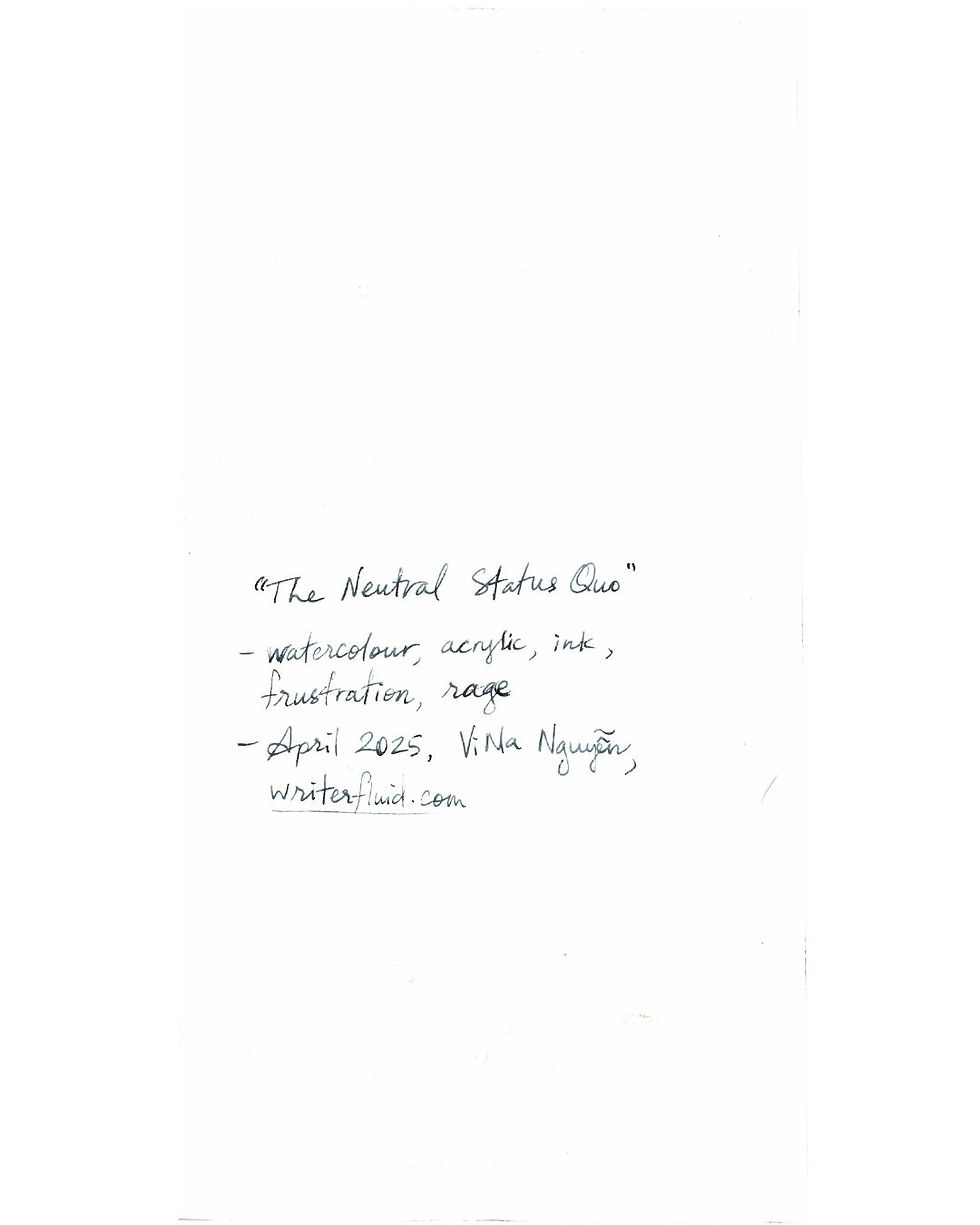 "The Neutral Status Quo"
- watercolour, acrylic, ink,
frustration, rage
- April 2025, ViNa Nguyễn,
writerfluid.com